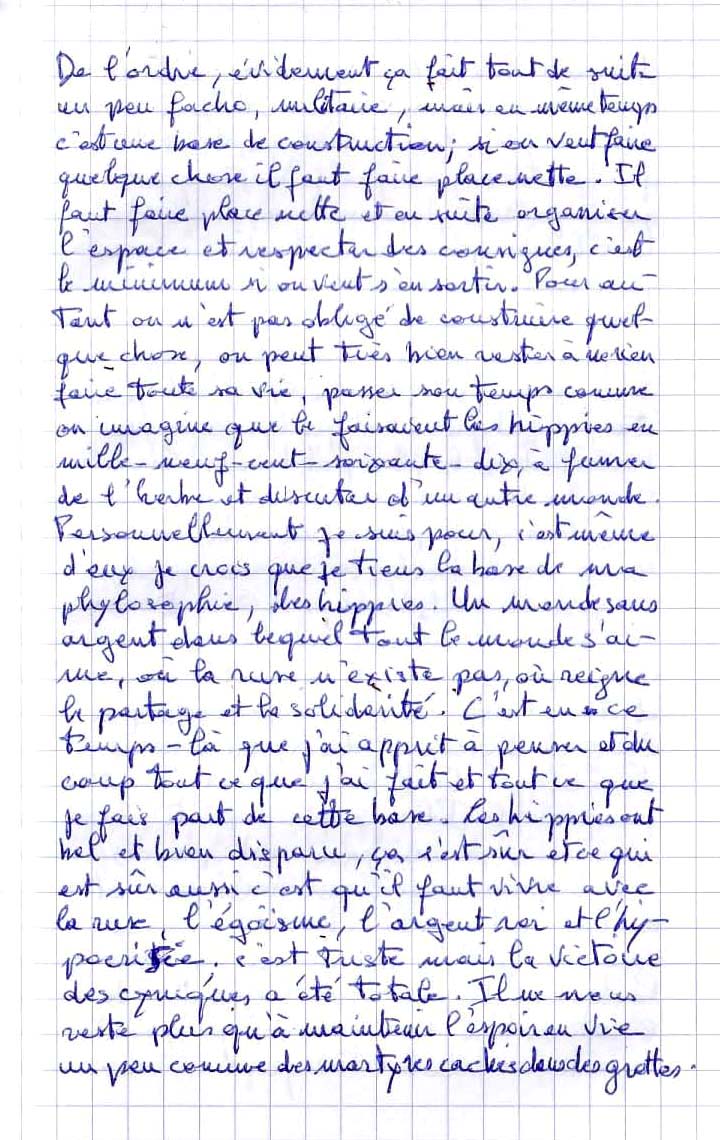 De l'ordre, évidement ça fait tout de suite
un peu facho, militaire, mais en même temps
c'est une base de construction; si on veut faire
quelque chose il faut faire place nette. Il
faut faire place nette et en suite organiser
l'espace et respecter des consignes, c'est
le minimum si on veut s'en sortir. Pour au-
tant on n'est pas obligé de construire quel-
que chose, on peut très bien rester à ne rien
faire toute sa vie, passer son temps comme
on imagine que le faisaient les hippies en
mille-neuf-cent-soixante-dix, à fumer
de l'herbe et discuter d'un autre monde.
Personnellement je suis pour, c'est même
d'eux je crois que je tiens la base de ma
phylosophie, des hippies. Un monde sans
argent dans lequel tout le monde s'ai-
me, où la ruse n'existe pas, où reigne
le partage et la solidarité. C'est en ce
temps-là que j'ai apprit à penser et du
coup tout ce que j'ai fait et tout ce que
je fais part de cette base. Les hippies ont
bel et bien disparu, ça c'est sûr et ce qui
est sûr aussi c'est qu'il faut vivre avec
la ruse, l'égoïsme, l'argent roi et l'hy-
pocrisie, c'est triste mais la victoire
des cyniques a été totale. Il ne nous
reste plus qu'à maintenir l'espoir en vie
un peu comme des martyres cachés dans des grottes.